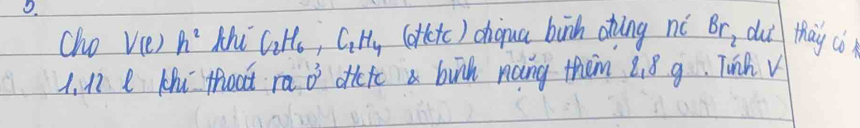 5.
Cho V(l) h² khí C₂H₆, C₂H₄ (đktc) đi qua bình đựng nc Br₂ dư thấy có
1,12 l khí thoát ra ở đktc & bình nặng thêm 2,8 g. Tính V